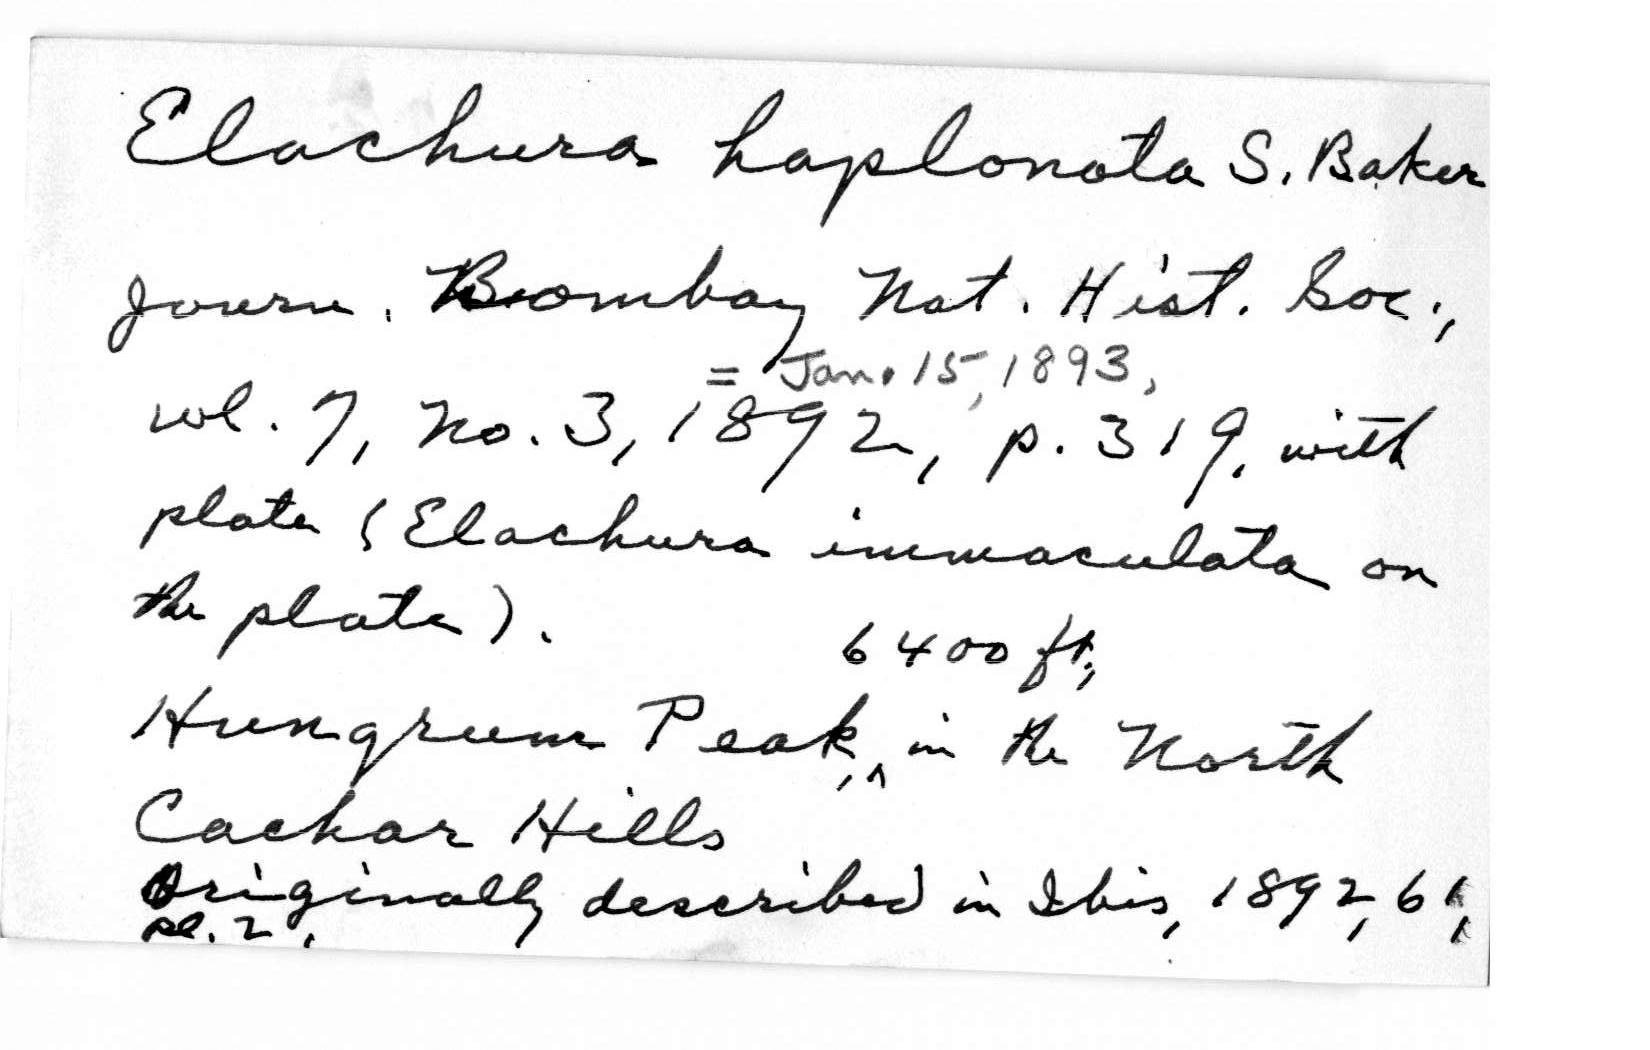 Elachura haplonota S. Baker
Journ. Bombay Nat. Hist. Soc.,
= Jan. 15, 1893,
vol. 7, no. 3, 1892, p. 319, with
plate (Elachura immaculata on
the plate).
6400 ft.,
Hungrum Peak, ^ in the North
Cachar Hills
Originally described in Ibis, 1892, 61,
pl. 2.